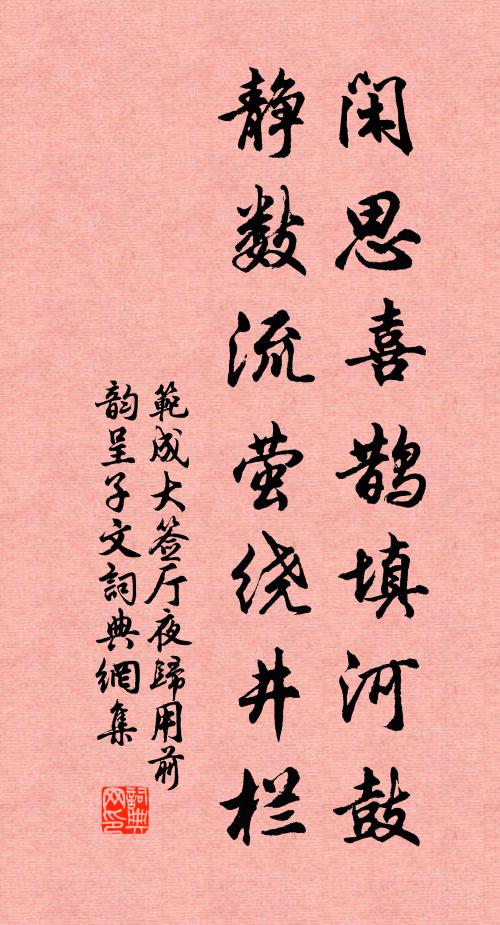 闲思喜鹊填河鼓
静数流萤绕井栏
範成大签厅夜歸用前
韵呈子文詞典網集
詞典
网印